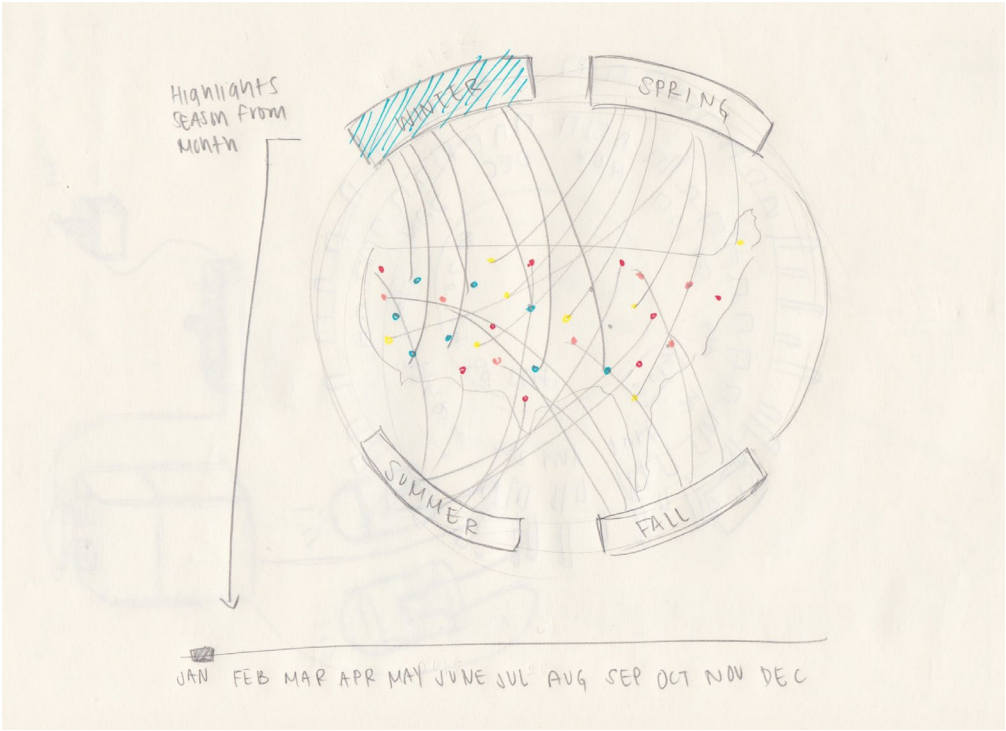 Highlights
SEASON From
Month
WINTER
SPRING
SUMMER
FALL
JAN FEB MAR APR MAY JUNE JUL AUG SEP OCT NOV DEC